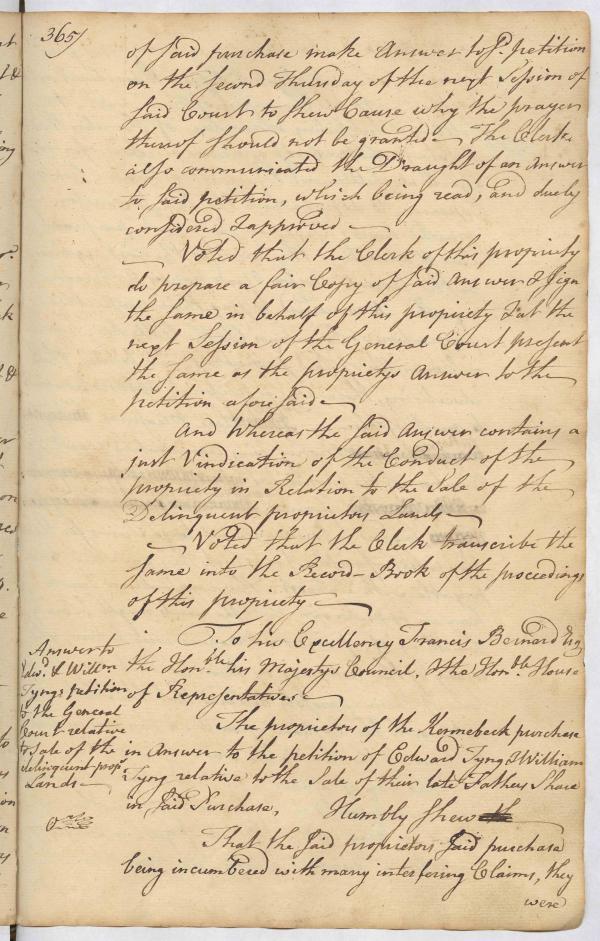 365/
of said purchase make Answer to sd. petition
on the second Thursday of the next Session of
said Court to shew Cause why the prayer
thereof should not be granted — The Clerk
also communicated the Draught of an answer
to said petition, which being read, and duely
considered & approved —
— Voted that the Clerk of this propriety
do prepare a fair Copy of said Answer & sign
the same in behalf of this propriety & at the
next Session of the General Court present
the same as the proprietys Answer to the
petition aforesaid —
And Whereas the said Answer contains a
just Vindication of the Conduct of the
propriety in Relation to the Sale of the
Delinquent proprietors Lands —
— Voted that the Clerk transcribe the
same into the Record-Book of the proceedings
of this propriety —
Answer to
Edwd. & Willm
Tyngs petition
to the General
Court relative
to Sale of the
delinquent propr
Lands —
To his Excellency Francis Bernard Esq
the Honble his Majestys Council, & the Honble House
of Representatives —
The proprietors of the Kennebeck purchase
in Answer to the petition of Edward Tyng & William
Tyng relative to the Sale of their late Fathers Share
in said Purchase, Humbly Shew
That the said proprietors said purchase
being incumbered with many interfering Claims, they
were